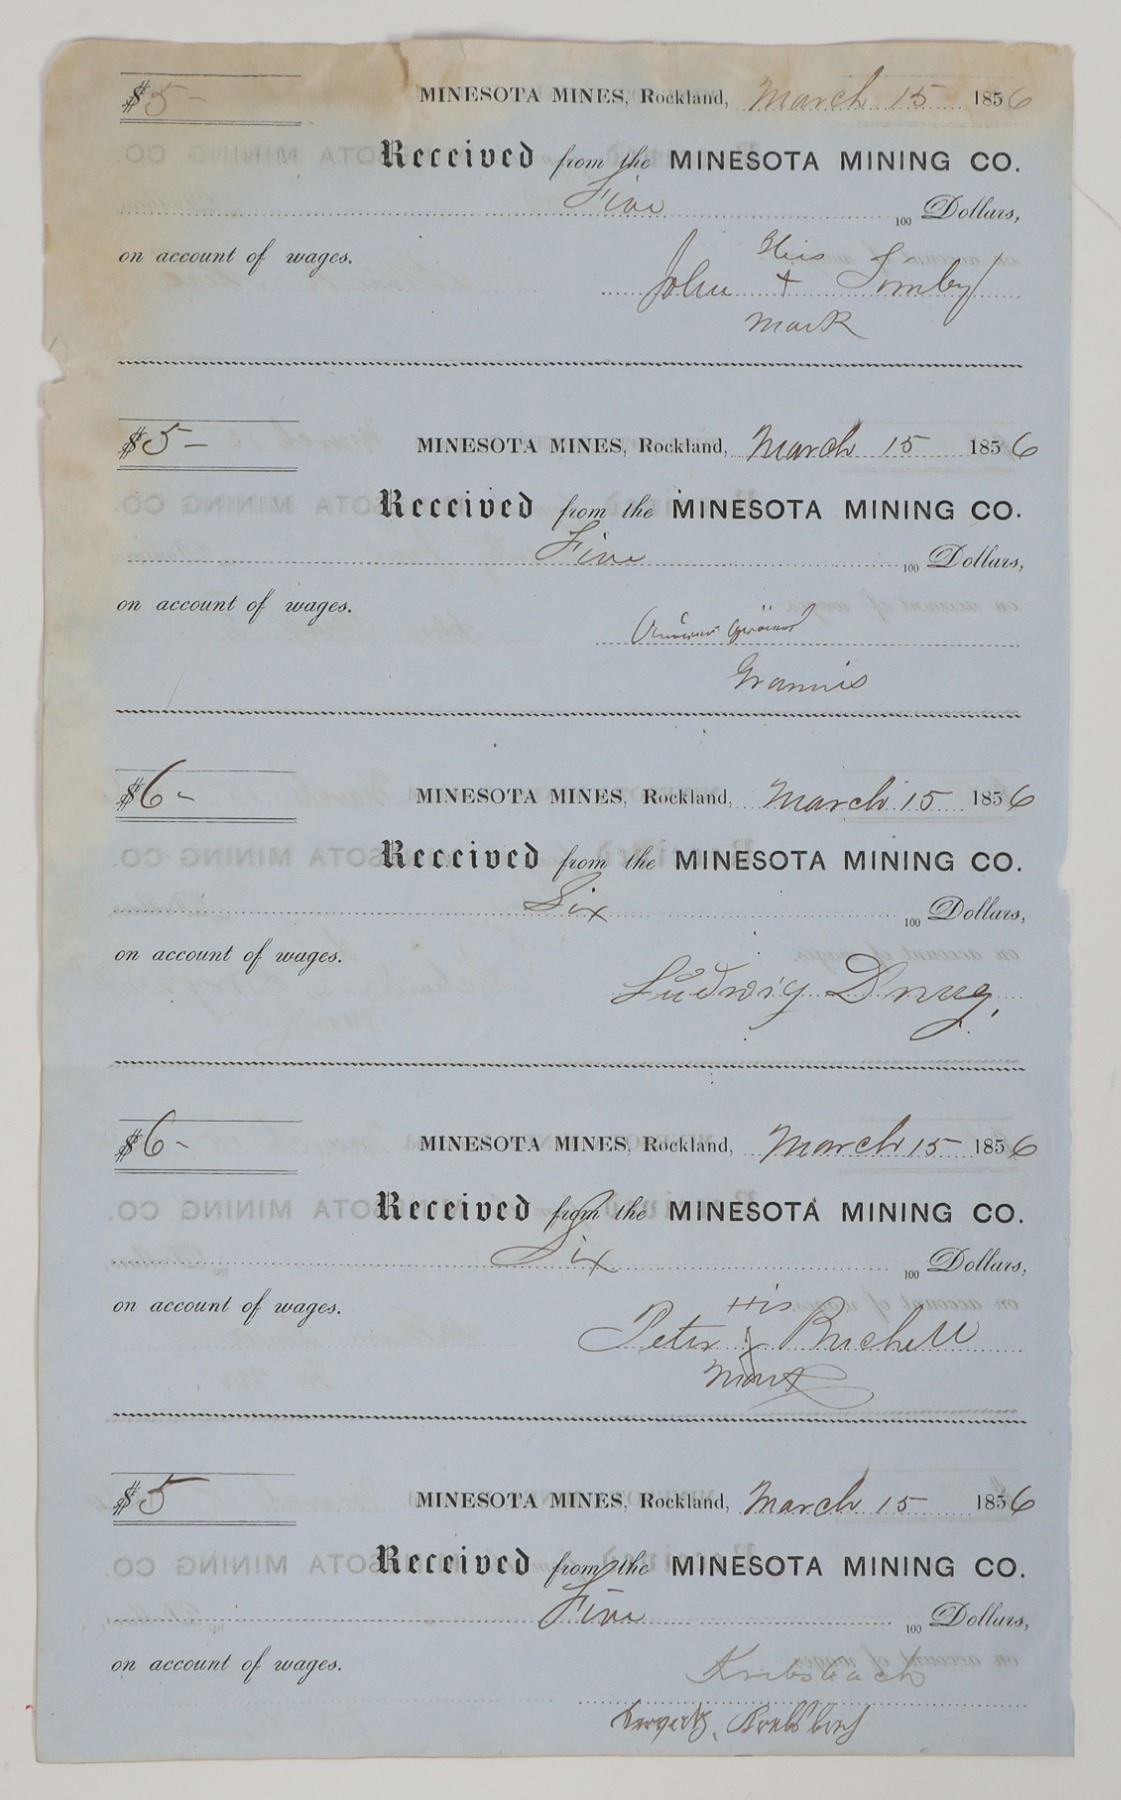 $5- MINESOTA MINES, Rockland, March 15 1856
Received from the MINESOTA MINING CO.
Five 100 Dollars,
on account of wages.
His
John + Tomby
mark
$5- MINESOTA MINES, Rockland, March 15 1856
Received from the MINESOTA MINING CO.
Five 100 Dollars,
on account of wages.
Grannis
$6- MINESOTA MINES, Rockland, March 15 1856
Received from the MINESOTA MINING CO.
Six 100 Dollars,
on account of wages.
Ludwig
$6- MINESOTA MINES, Rockland, March 15 1856
Received from the MINESOTA MINING CO.
Six 100 Dollars,
on account of wages.
His
Peter x Buchell
mark
$5 MINESOTA MINES, Rockland, March 15 1856
Received from the MINESOTA MINING CO.
Five 100 Dollars,
on account of wages.
Krebsbach